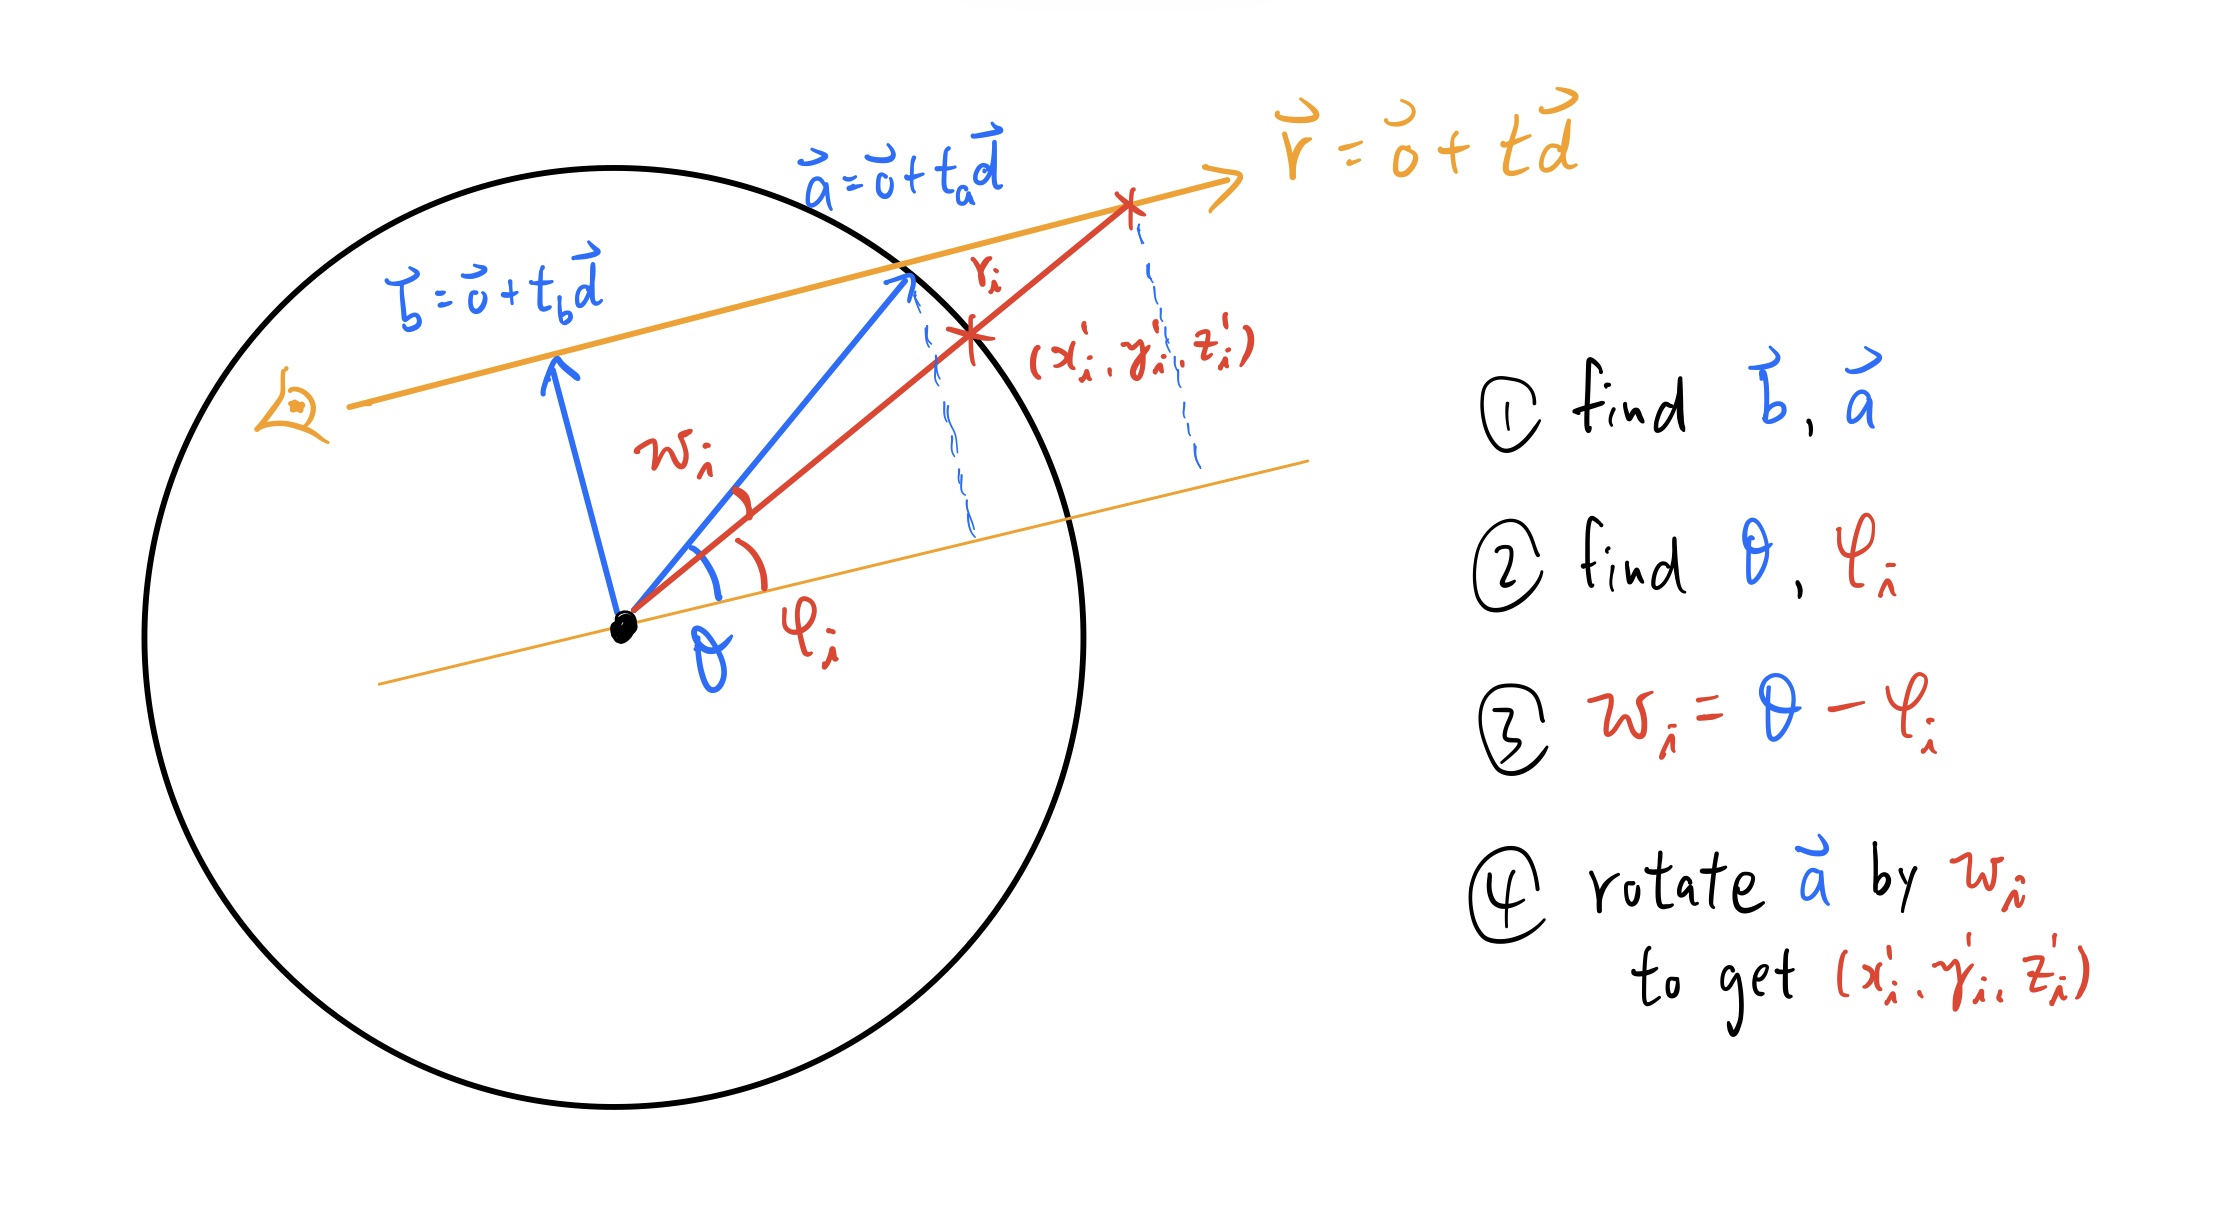 r⃗ = o⃗ + td⃗
a⃗ = o⃗ + tₐd⃗
b⃗ = o⃗ + t_b d⃗
rᵢ
(xᵢ', yᵢ', zᵢ')
wᵢ
θ
φᵢ
① find b⃗, a⃗
② find θ, φᵢ
③ wᵢ = θ − φᵢ
④ rotate a⃗ by wᵢ
to get (xᵢ', yᵢ', zᵢ')